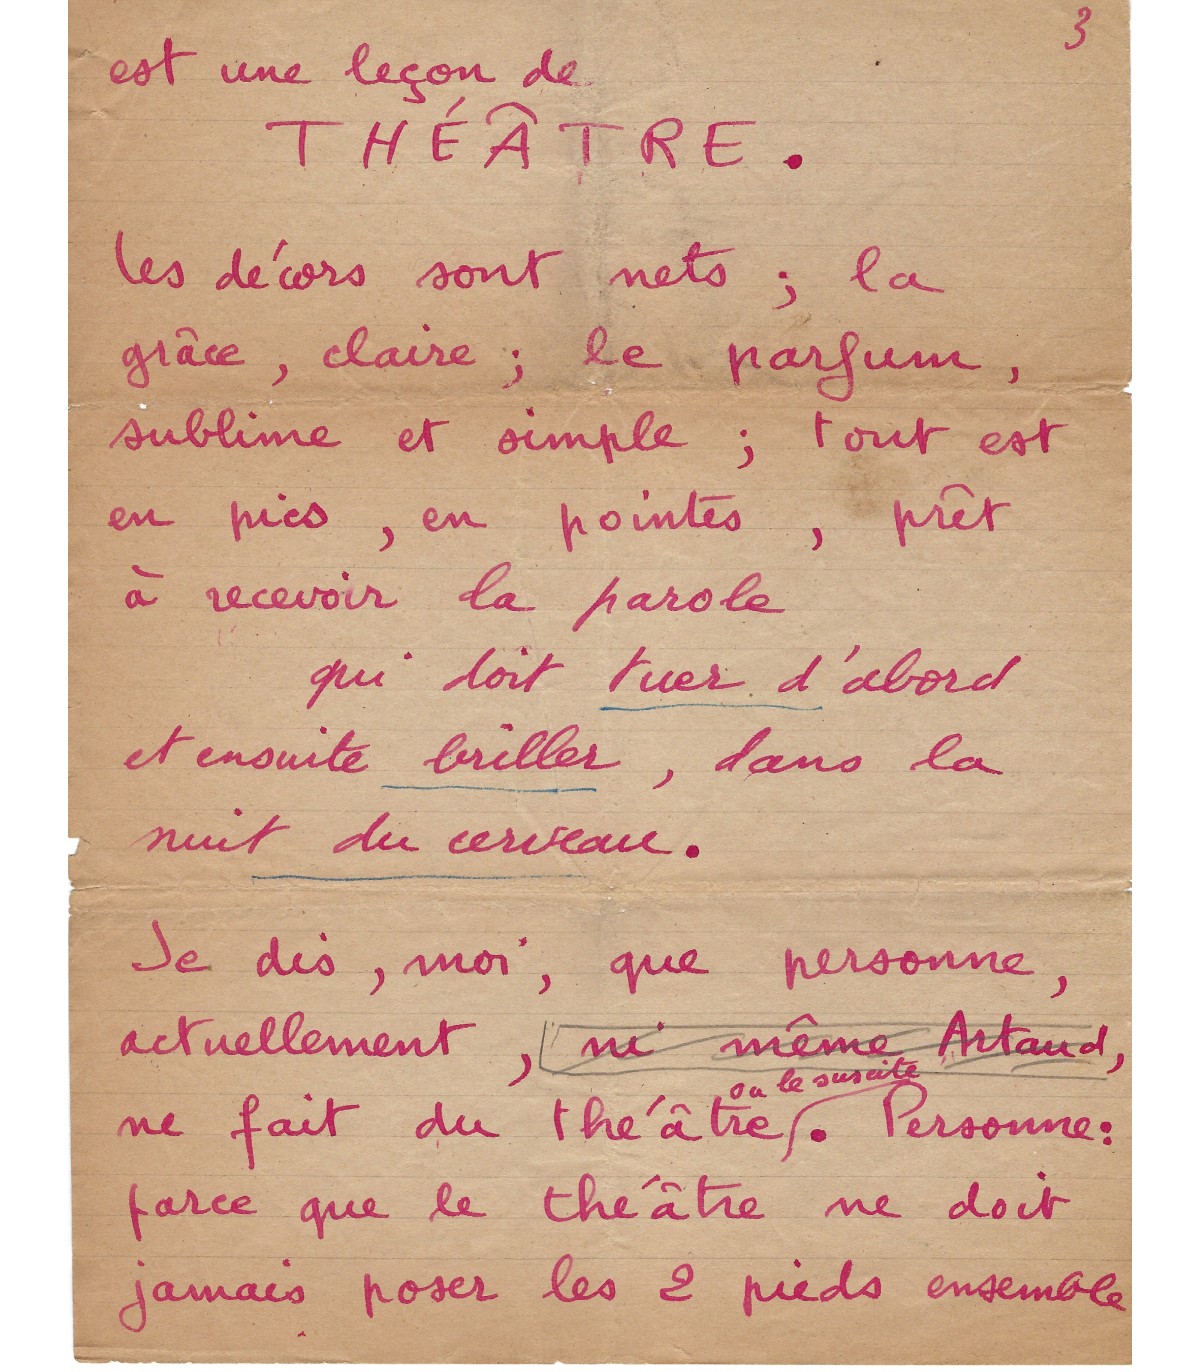 3
est une leçon de
THÉÂTRE.
les décors sont nets ; la
grâce, claire ; le parfum,
sublime et simple ; tout est
en pics, en pointes, prêt
à recevoir la parole
qui doit tuer d'abord
et ensuite briller, dans la
nuit du cerveau.
Je dis, moi, que personne,
actuellement, ni même Artaud,
ou le suscite
ne fait du théâtre. Personne :
parce que le théâtre ne doit
jamais poser les 2 pieds ensemble